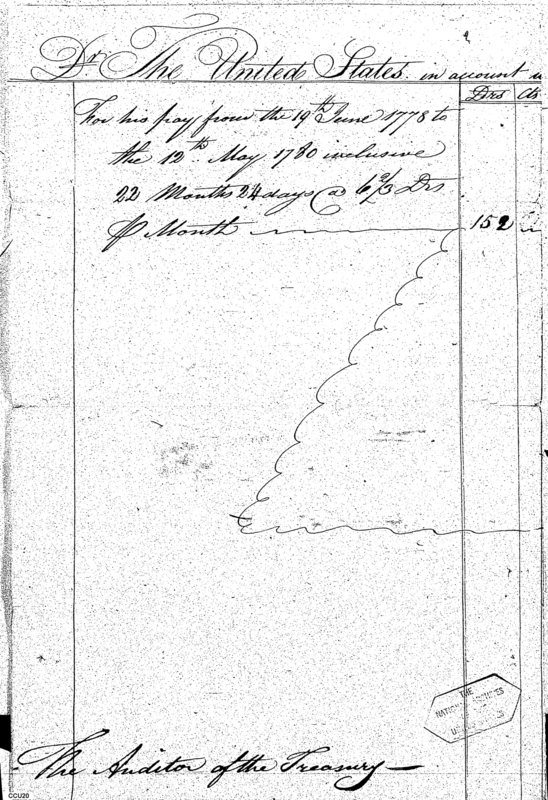 Dr The United States in account
Drs Cts
For his pay from the 19th June 1778 to
the 12th May 1780 inclusive
22 Months 24 days @ 6 2/3 Drs
⅌ Month 152
THE
NATIONAL ARCHIVES
The Auditor of the Treasury
CCU20